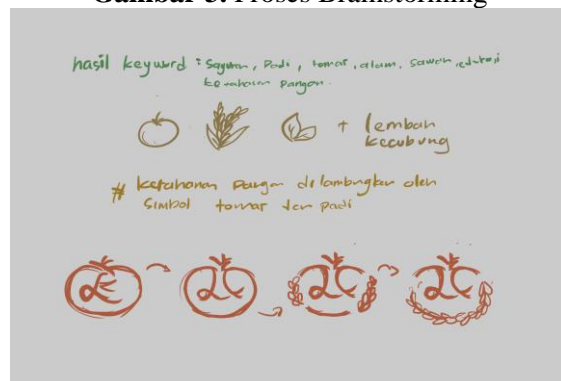 Gambar 3. Proses Brainstorming
hasil keyword : Sayuran, Padi, tomat, alam, sawah, edukasi
ketahanan pangan.
+ lembah
kecubung
# ketahanan Pangan dilambangkan oleh
simbol tomat dan padi
LK
LC
LC
LC